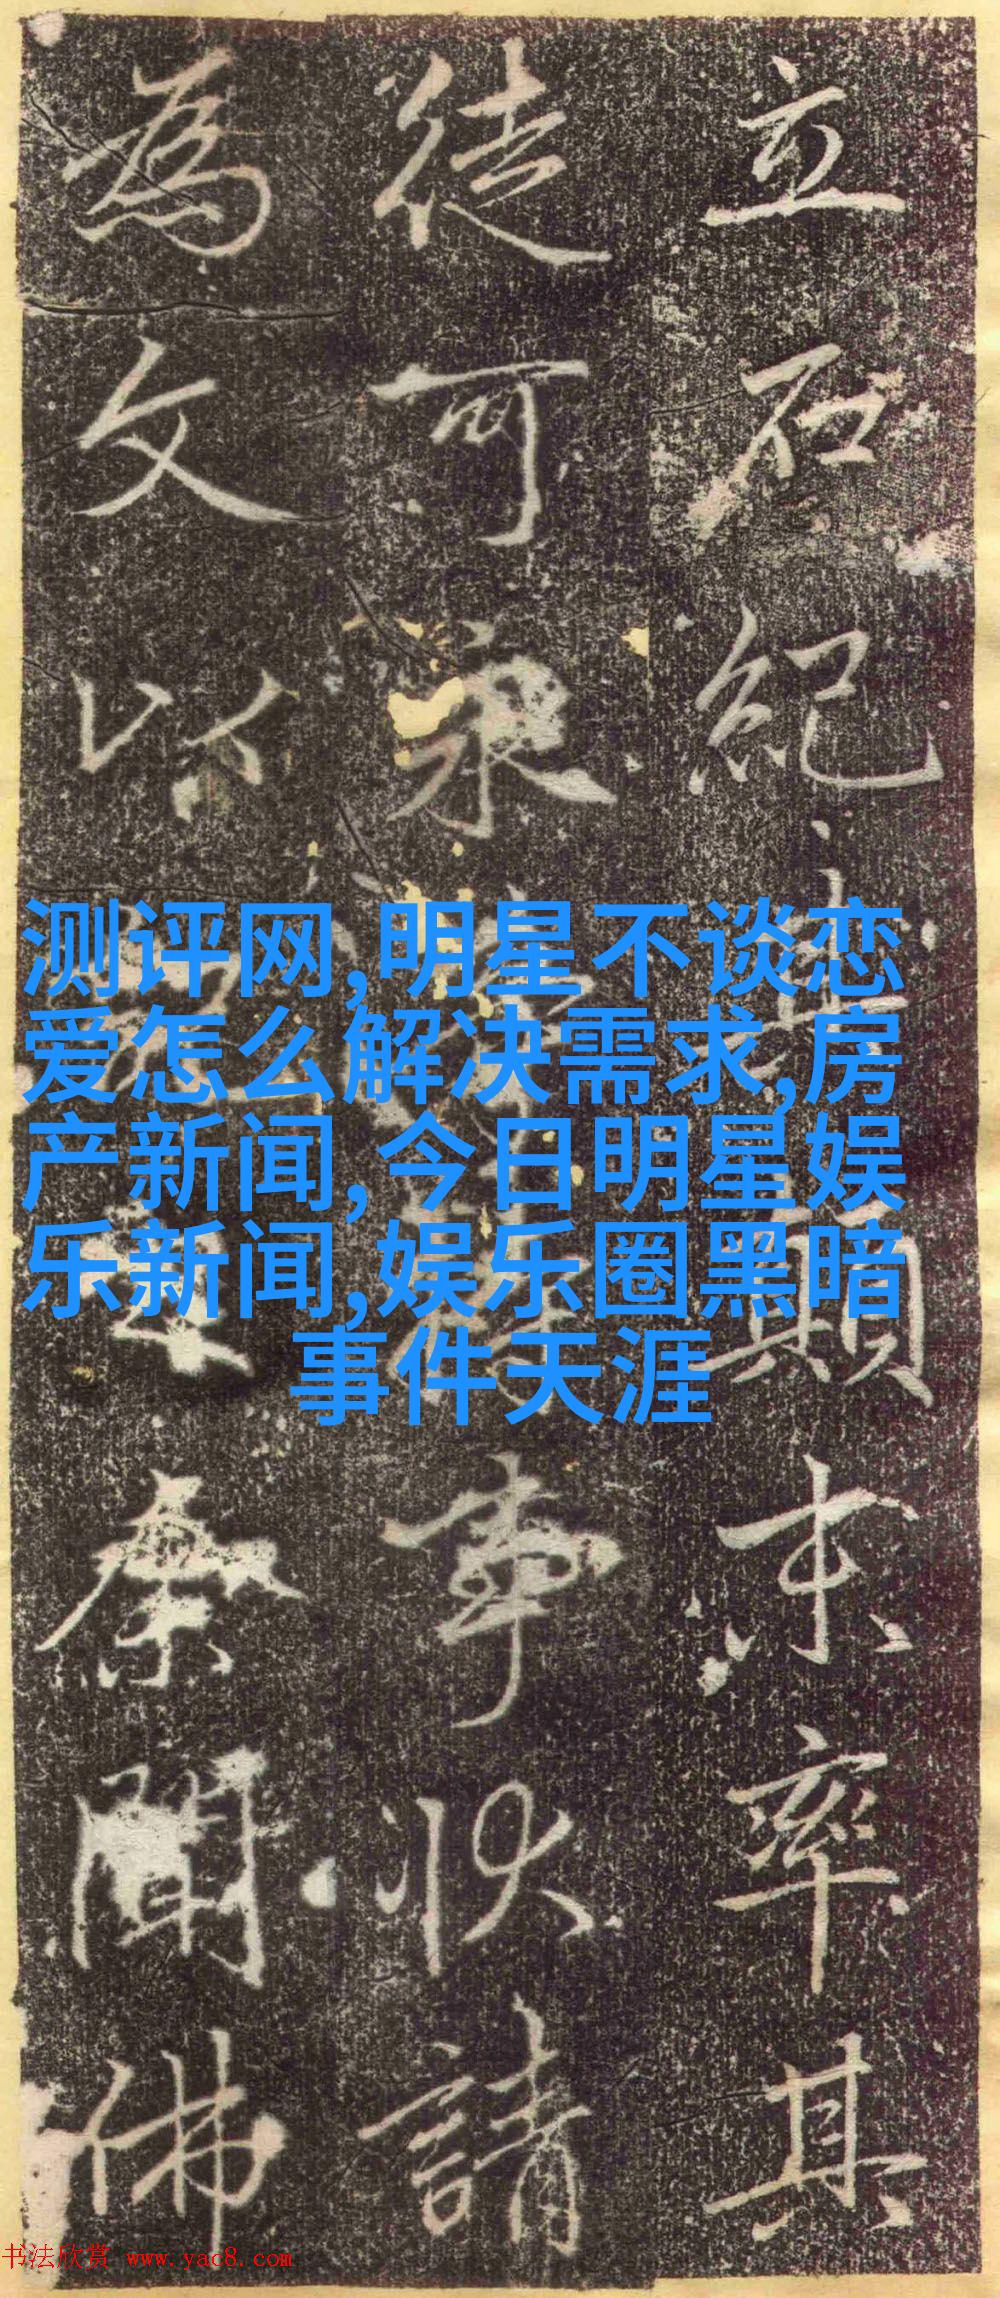 立石紀其顛末率其
徒可永事狀請
為文以余聞佛
测评网,明星不谈恋
爱怎么解决需求,房
产新闻,今日明星娱
乐新闻,娱乐圈黑暗
事件天涯
书法欣赏 www.yac8.com